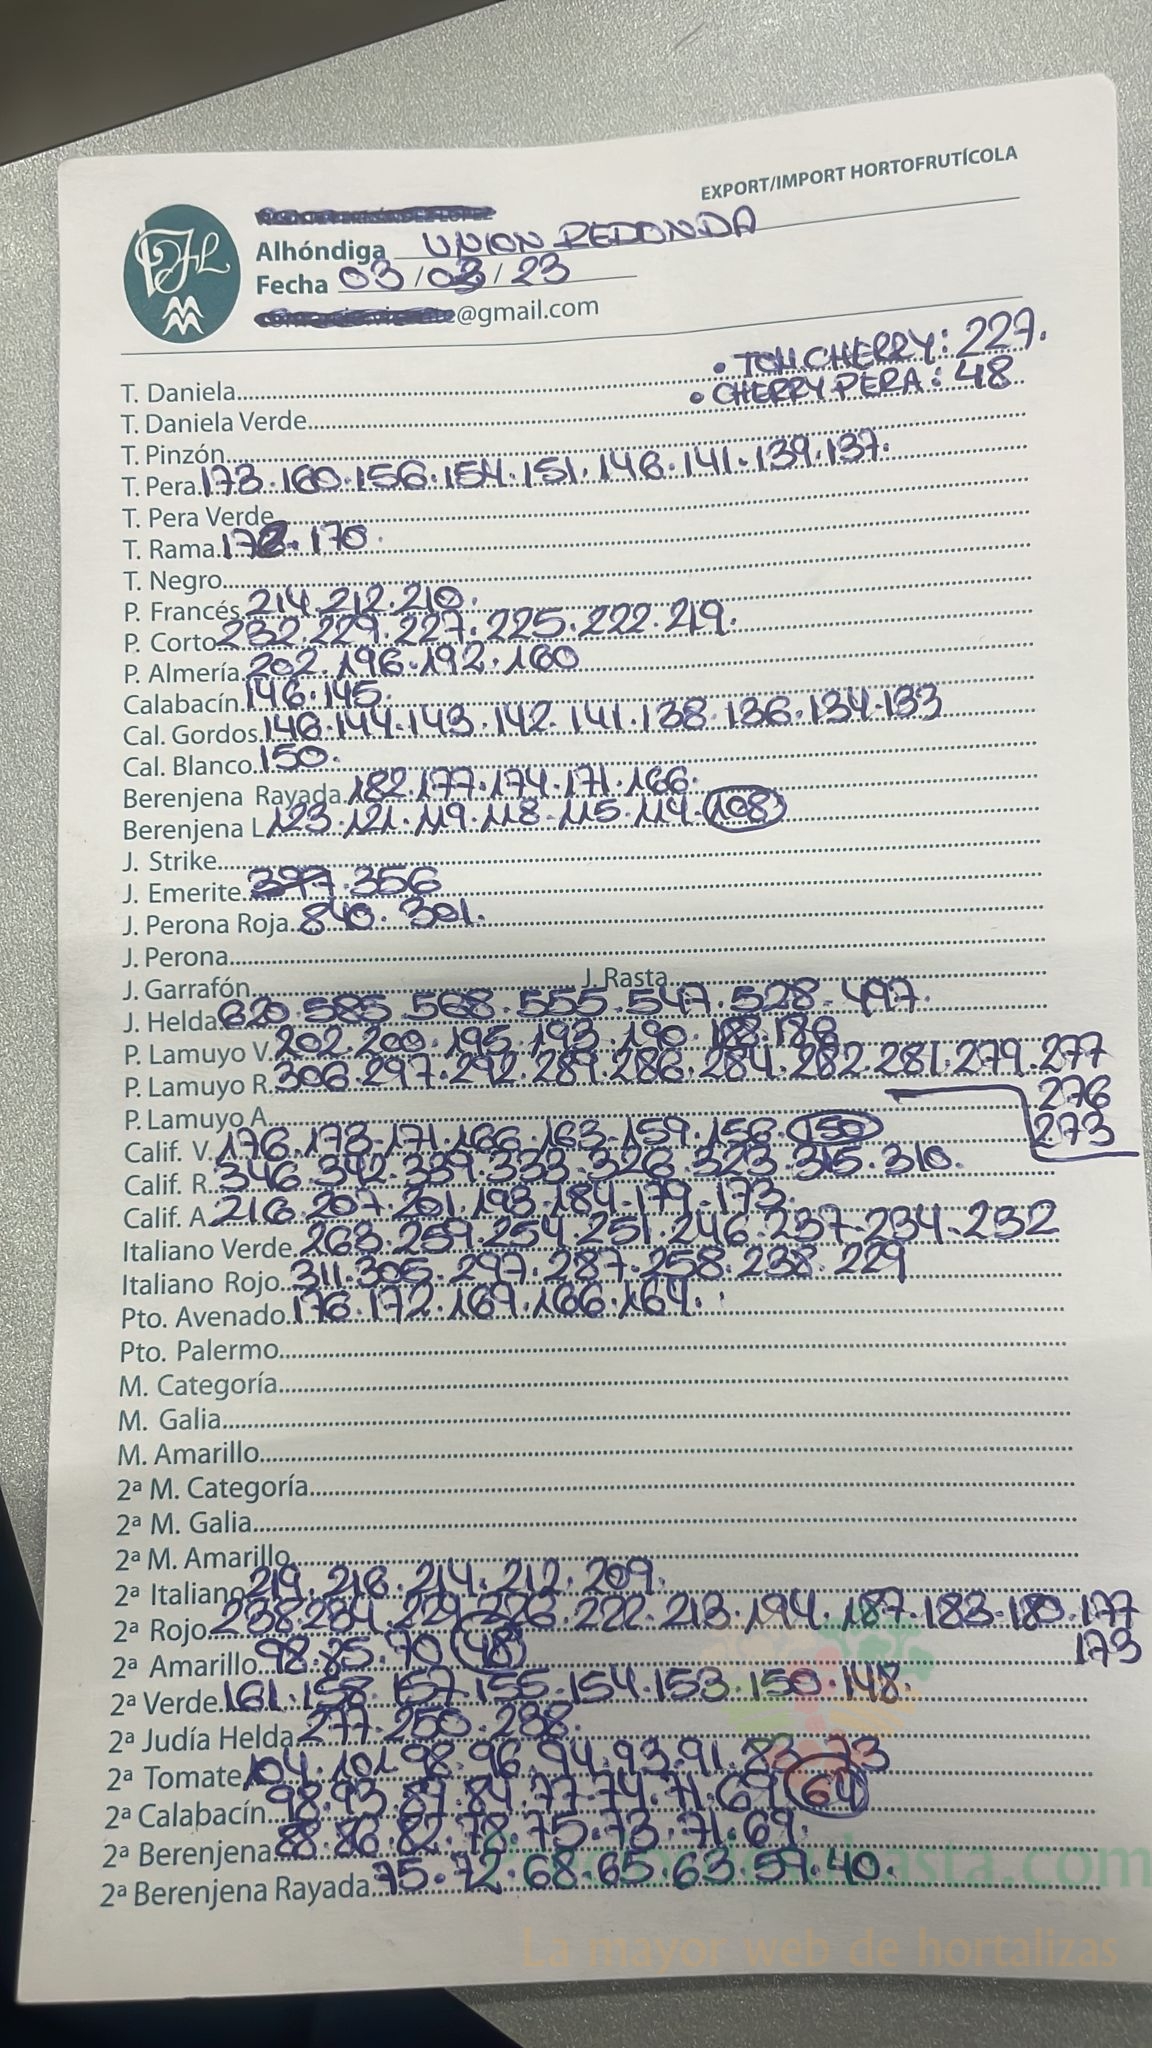 EXPORT/IMPORT HORTOFRUTÍCOLA
Alhóndiga UNION REDONDA
Fecha 03/03/23
@gmail.com
• TOM CHERRY: 227.
T. Daniela
• CHERRY PERA: 48
T. Daniela Verde
T. Pinzón
T. Pera 173.160.156.154.151.146.141.139.137.
T. Pera Verde
T. Rama 170.
T. Negro
P. Francés 214.212.210.
P. Corto 232.229.227.225.222.219.
P. Almería 202.196.192.160
Calabacín 146.145.
Cal. Gordos 146.144.143.142.141.138.136.134.133
Cal. Blanco 150.
Berenjena Rayada 182.177.174.171.166.
Berenjena L 123.121.119.118.115.114.108
J. Strike
J. Emerite 397.356
J. Perona Roja 840.301.
J. Perona
J. Garrafón J. Rasta
J. Helda 620.585.568.555.547.528.497.
P. Lamuyo V. 202.200.195.193.190.188.186
P. Lamuyo R. 306.297.292.289.286.284.282.281.279.277
276
P. Lamuyo A.
273
Calif. V. 176.173.171.166.163.159.156.150
Calif. R. 346.342.339.333.326.323.315.310.
Calif. A. 216.207.201.193.184.179.173.
Italiano Verde 263.259.254.251.246.237.234.232
Italiano Rojo 311.305.297.287.258.238.229
Pto. Avenado 176.172.169.166.164.
Pto. Palermo
M. Categoría
M. Galia
M. Amarillo
2ª M. Categoría
2ª M. Galia
2ª M. Amarillo
2ª Italiano 219.216.214.212.209.
2ª Rojo 238.234.229.226.222.213.194.187.183.180.177
173
2ª Amarillo 98.85.70.48
2ª Verde 161.158.157.155.154.153.150.148.
2ª Judía Helda 277.250.238.
2ª Tomate 104.101.98.96.94.93.91.83.73
2ª Calabacín 98.93.89.84.77.74.71.69.64
2ª Berenjena 88.86.82.78.75.73.71.69.
2ª Berenjena Rayada 75.72.68.65.63.59.40.
La mayor web de hortalizas